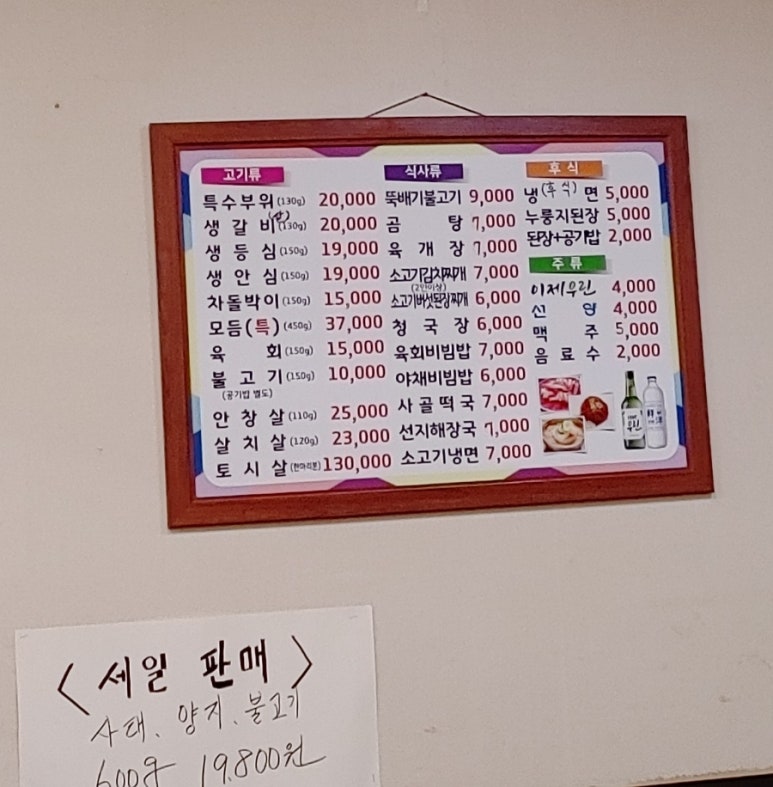 고기류
특수부위(130g) 20,000
생갈비(130g) 20,000
생등심(150g) 19,000
생안심(150g) 19,000
차돌박이(150g) 15,000
모듬(특)(450g) 37,000
육회(150g) 15,000
불고기(150g) 10,000
(공기밥 별도)
안창살(110g) 25,000
살치살(120g) 23,000
토시살(한마리분) 130,000
식사류
뚝배기불고기 9,000
곰탕 7,000
육개장 7,000
소고기김치찌개 7,000
(2인이상)
소고기버섯된장찌개 6,000
청국장 6,000
육회비빔밥 7,000
야채비빔밥 6,000
사골떡국 7,000
선지해장국 7,000
소고기냉면 7,000
후식
냉(후식)면 5,000
누룽지된장 5,000
된장+공기밥 2,000
주류
이제우린 4,000
선양 4,000
맥주 5,000
음료수 2,000
<세일 판매>
사태、양지、불고기
600g 19,800원